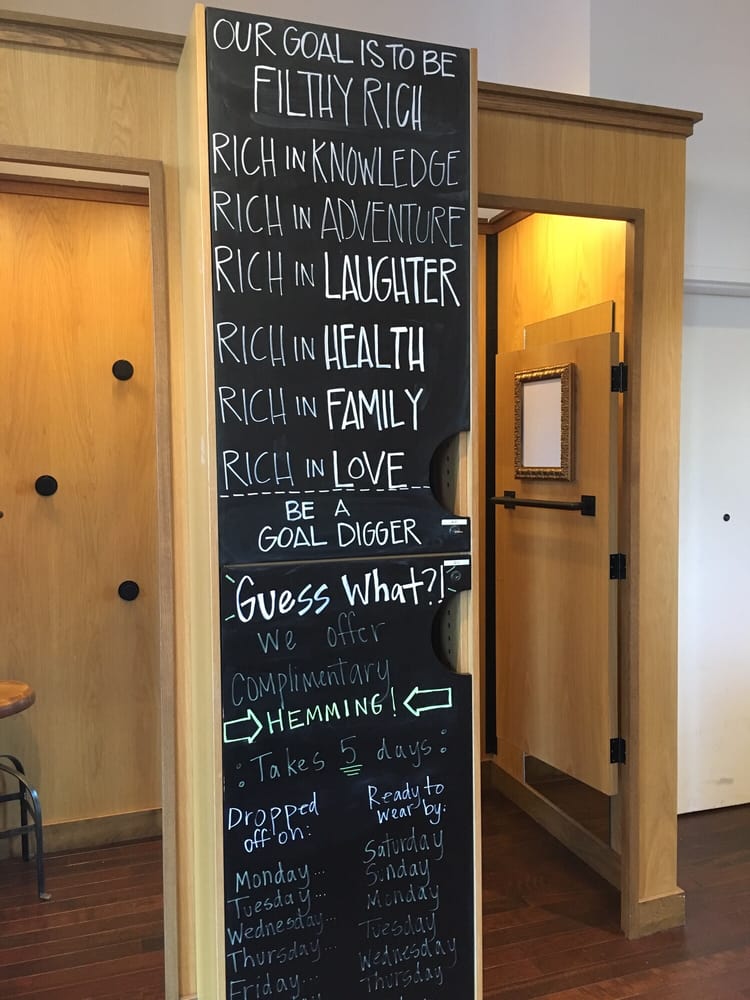 OUR GOAL IS TO BE
FILTHY RICH
RICH IN KNOWLEDGE
RICH IN ADVENTURE
RICH IN LAUGHTER
RICH IN HEALTH
RICH IN FAMILY
RICH IN LOVE
BE A
GOAL DIGGER
Guess What?!
We offer
complimentary
HEMMING!
Takes 5 days:
Dropped off on: Ready to wear by:
Monday... Saturday
Tuesday... Sunday
Wednesday... Monday
Thursday... Tuesday
Friday... Wednesday
Thursday